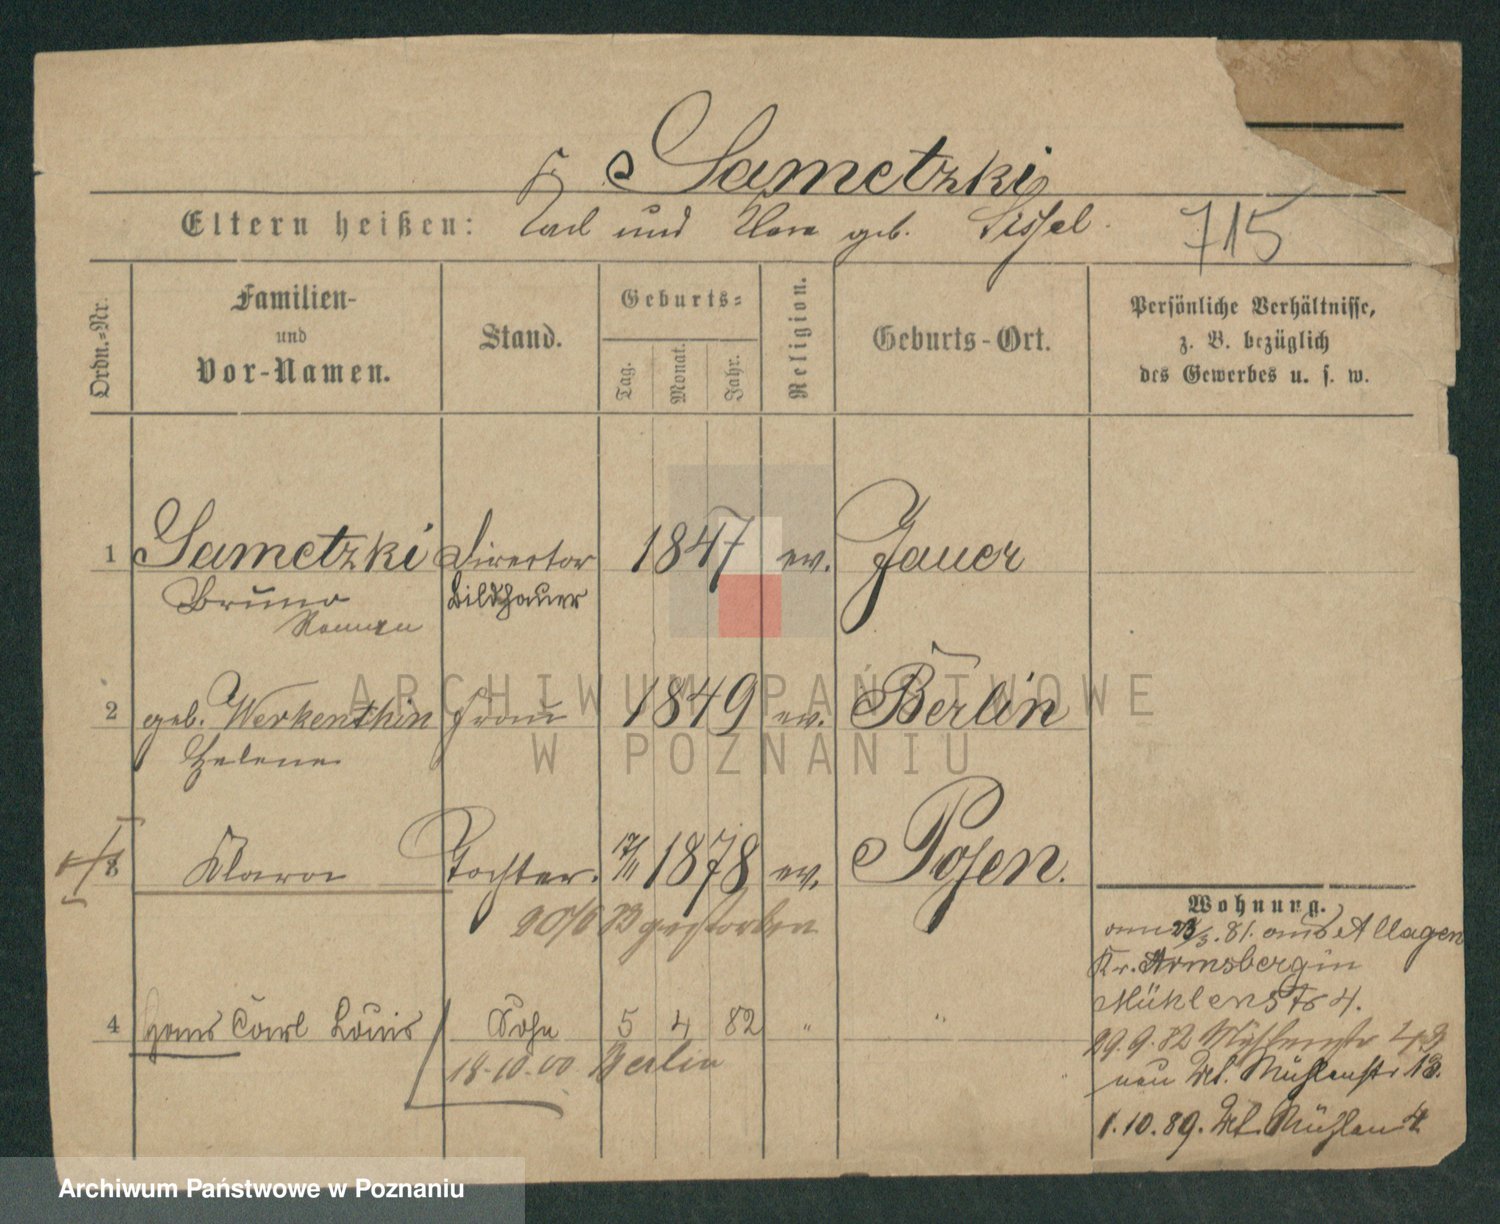 Sametzki
Eltern heißen: Carl und Clara geb. Sissel.
715
Ordn.-Nr.
Familien-
und
Vor-Namen.
Stand.
Geburts-
Tag.
Monat.
Jahr.
Religion.
Geburts-Ort.
Persönliche Verhältnisse,
z. B. bezüglich
des Gewerbes u. s. w.
1 Sametzki Director 1847 ev. Jauer
Bruno Bildhauer
Roman
2 geb. Werkenthin Frau 1849 ev. Berlin
Helene
3 Klara Tochter. 17/11 1878 ev. Posen.
gestorben
4 Hans Carl Louis Sohn 5 4 82 " "
18.10.00 Berlin
Wohnung.
23/3. 81. aus Allagen
Kr. Arnsberg in
Mühlenstr 4.
29.9.82 Mühlenstr 43
neu Mühlenstr 13.
1.10.89. Mühlen 4
ARCHIWUM PAŃSTWOWE
W POZNANIU
Archiwum Państwowe w Poznaniu